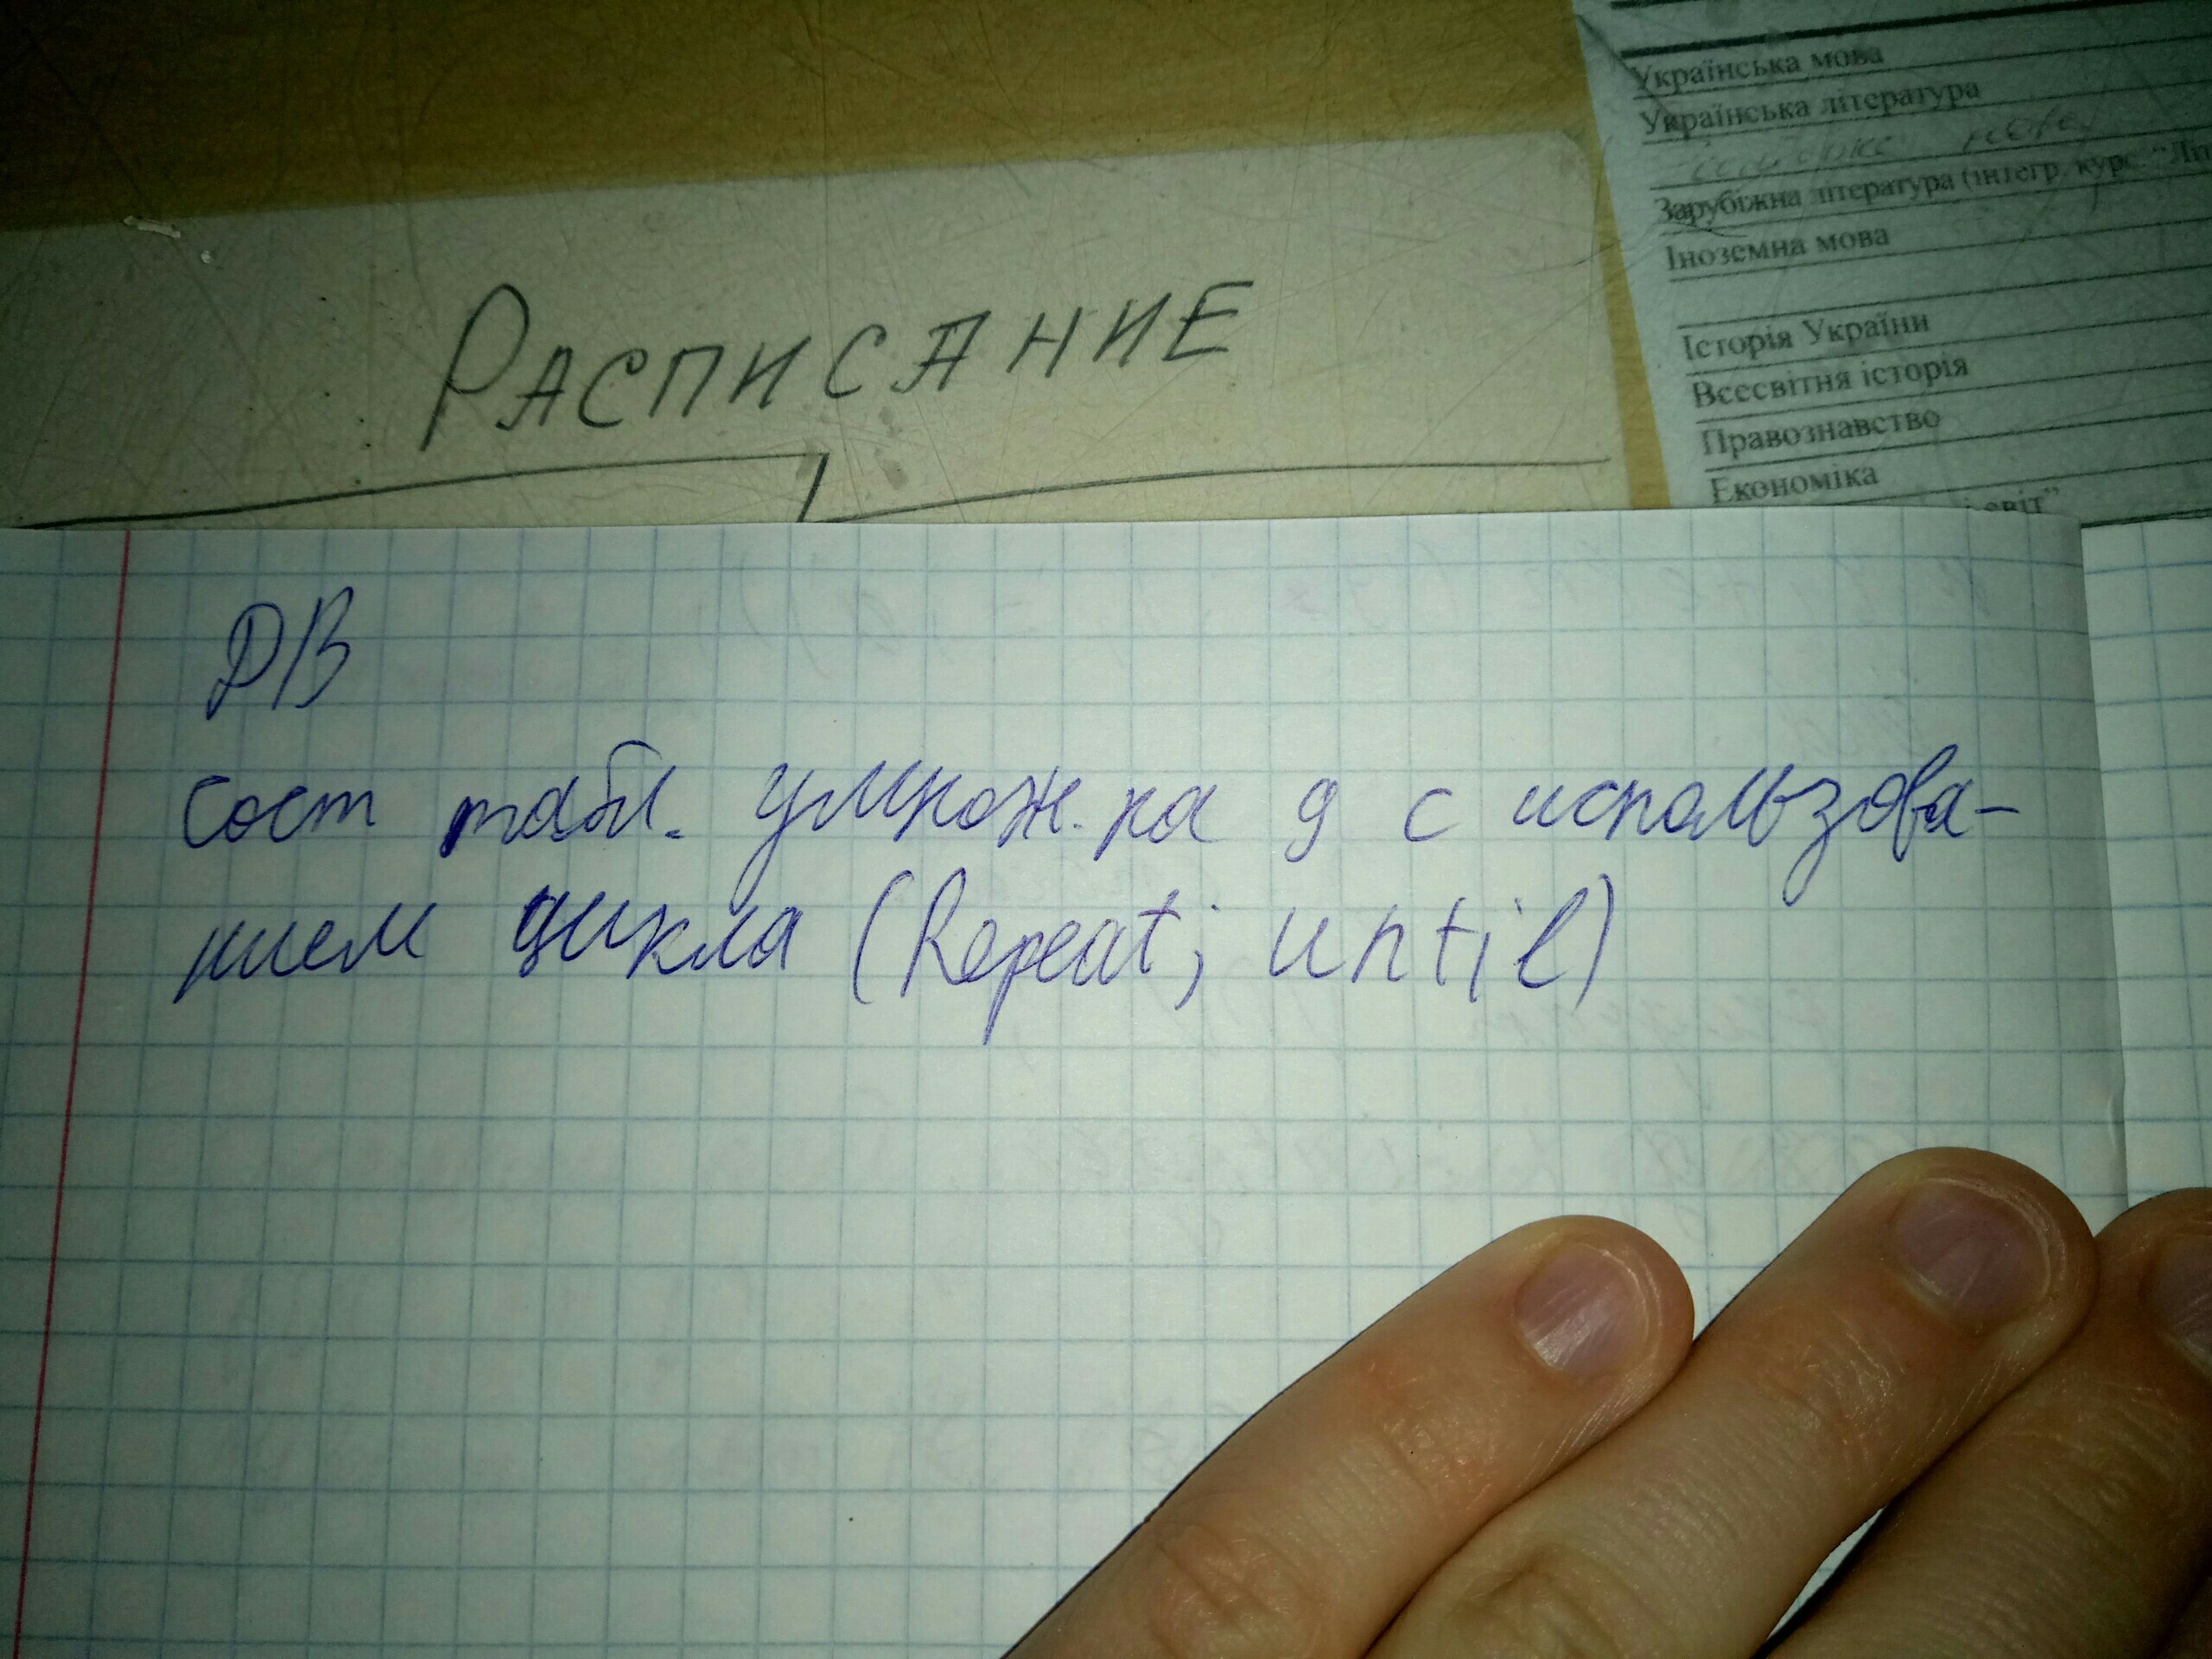 Українська мова
Українська література
Зарубіжна література (інтегр. курс. "Літ
Іноземна мова
Історія України
Всесвітня історія
Правознавство
Економіка
світ"
РАСПИСАНИЕ
РВ
Сост табл. умнож. на 9 с использова-
нием цикла (Repeat; until)